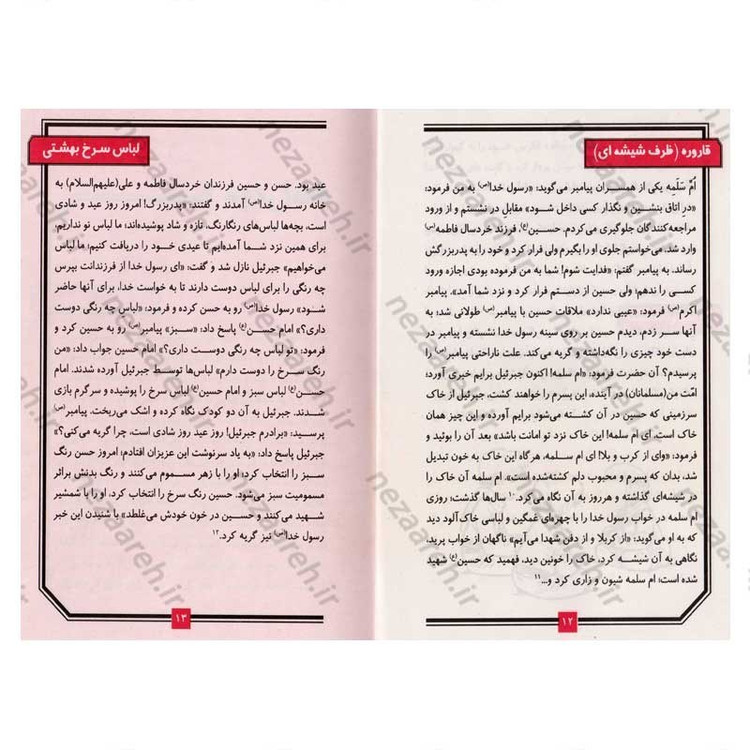 قاروره (ظرف شیشه ای)
اُمّ سَلَمِه یکی از همسران پیامبر می‌گوید: «رسول خدا(ص) به من فرمود:
«درِ اتاق بنشین و نگذار کسی داخل شود» مقابل در نشستم و از ورود
مراجعه‌کنندگان جلوگیری می‌کردم. حسین(ع)، فرزند خردسال فاطمه(س)
وارد شد، می‌خواستم جلوی او را بگیرم ولی فرار کرد و خود را به پدربزرگش
رساند. به پیامبر گفتم: «فدایت شوم! شما به من فرموده بودی اجازه ورود
کسی را ندهم؛ ولی حسین از دستم فرار کرد و نزد شما آمد». پیامبر
اکرم(ص) فرمود: «عیبی ندارد» ملاقات حسین با پیامبر(ص) طولانی شد؛ به
آنها سر زدم، دیدم حسین بر روی سینه رسول خدا نشسته و پیامبر در
دست خود چیزی را نگه‌داشته و گریه می‌کند. علت ناراحتی پیامبر(ص) را
پرسیدم؟ آن حضرت فرمود: «ام سلمه! اکنون جبرئیل برایم خبری آورد؛
امّت من(مسلمانان) در آینده، این پسرم را خواهند کشت، جبرئیل از خاک
سرزمینی که حسین در آن کشته می‌شود برایم آورده و این چیز همان
خاک است. ای ام سلمه! این خاک نزد تو امانت باشد» بعد آن را بوئید و
فرمود: «وای از کرب و بلا! ای ام سلمه، هرگاه این خاک به خون تبدیل
شد، بدان که پسرم و محبوب دلم کشته‌شده است». ام سلمه آن خاک را
در شیشه‌ای گذاشته و هرروز به آن نگاه می‌کرد.۱۰ سال‌ها گذشت؛ روزی
ام سلمه در خواب رسول خدا را با چهره‌ای غمگین و لباسی خاک‌آلود دید
که به او می‌گوید: «از کربلا و از دفن شهدا می‌آیم» ناگهان از خواب پرید،
نگاهی به آن شیشه کرد، خاک را خونین دید، فهمید که حسین(ع) شهید
شده است؛ ام سلمه شیون و زاری کرد و...۱۱
۱۲
لباس سرخ بهشتی
عید بود. حسن و حسین فرزندان خردسال فاطمه و علی(علیهم‌السلام) به
خانه رسول خدا(ص) آمدند و گفتند: «پدربزرگ! امروز روز عید و شادی
است، بچه‌ها لباس‌های رنگارنگ، تازه و شاد پوشیده‌اند؛ ما لباس نو نداریم.
برای همین نزد شما آمده‌ایم تا عیدی خود را دریافت کنیم؛ ما لباس
می‌خواهیم» جبرئیل نازل شد و گفت: «ای رسول خدا از فرزندانت بپرس
چه رنگی را برای لباس دوست دارند تا به خواست خدا، برای آنها حاضر
شود» رسول خدا(ص) رو به حسن کرده و فرمود: «لباس چه رنگی دوست
داری؟» امام حسن(ع) پاسخ داد: «سبز» پیامبر(ص) رو به حسین کرد و
فرمود: «تو لباس چه رنگی دوست داری؟» امام حسین جواب داد: «من
رنگ سرخ را دوست دارم» لباس‌ها توسط جبرئیل آورده شدند. امام
حسن(ع) لباس سبز و امام حسین(ع) لباس سرخ را پوشیده و سرگرم بازی
شدند. جبرئیل به آن دو کودک نگاه کرده و اشک می‌ریخت. پیامبر(ص)
پرسید: «برادرم جبرئیل! روز عید روز شادی است، چرا گریه می‌کنی؟»
جبرئیل پاسخ داد: «به یاد سرنوشت این عزیزان افتادم؛ امروز حسن رنگ
سبز را انتخاب کرد؛ او را با زهر مسموم می‌کنند و رنگ بدنش براثر
مسمومیت سبز می‌شود. حسین رنگ سرخ را انتخاب کرد، او را با شمشیر
شهید می‌کنند و حسین در خون خودش می‌غلطد» با شنیدن این خبر
رسول خدا(ص) نیز گریه کرد.۱۲
۱۳
nezaareh.ir